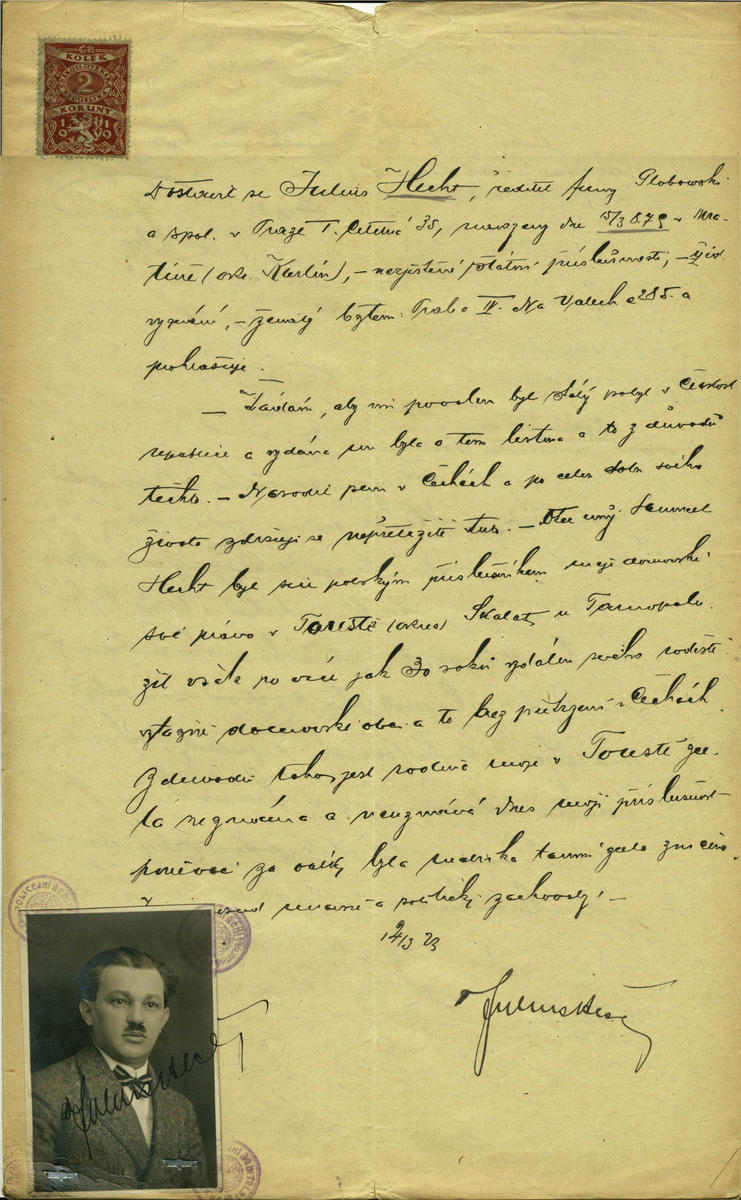 KOLEK
2
KORUNY
1919
Dostavil se Julius Hecht, ředitel firmy Globowski
a spol. v Praze I. Celetná 35, narozený dne 15/3 1879 v
(okr. Karlín), – nezjištěné státní příslušnosti, – žid.
vyznání, – ženatý bytem: Praha II. Na 285. a
prohlašuje.
– Žádám, aby mi povolen byl stálý pobyt v Českosl.
republice a vydána mi byla o tom listina a to z důvodů
těchto. – Narodil jsem v Čechách a po celou dobu svého
života zdržuji se nepřetržitě tu. – Otec můj Samuel
Hecht byl sice polským příslušníkem maje domovské
své právo v Toustě (okres) Skalat u Tarnopolu.
žil však po více jak 30 roků vzdálen svého rodiště
vztažně domovské obce a to bez přetržení v Čechách.
Z důvodu toho jest rodina moje v Toustě zce-
la neznáma a neuznává dnes moji příslušnost
poněvač za války byla matrika tamní zcela zničena
a politický
12/3 23
Julius Hecht
Julius Hecht
POLICEJNÍ ŘEDITELSTVÍ